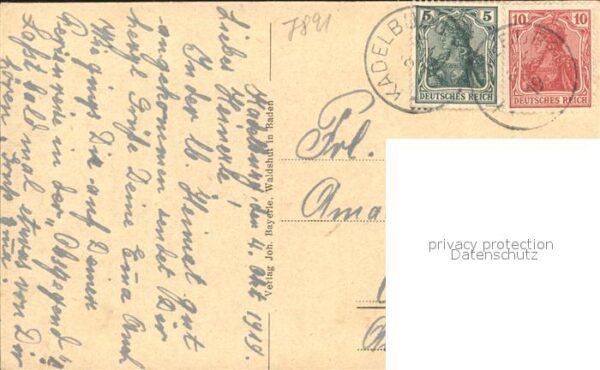 7891
KADELBURG
5 5
DEUTSCHES REICH
10 10
DEUTSCHES REICH
Kadelburg, den 4. Okt 1919.
Liebes
In der lb. Heimat gut
angekommen sendet Dir
herzl. Grüße Deine Ema. Auch
Wie gings Dir auf Deiner
in der
Laßt bald mal etwas von Dir
hören. Gruß Ema.
Verlag Joh. Bayerle, Waldshut in Baden
Frl.
Ama
privacy protection
Datenschutz